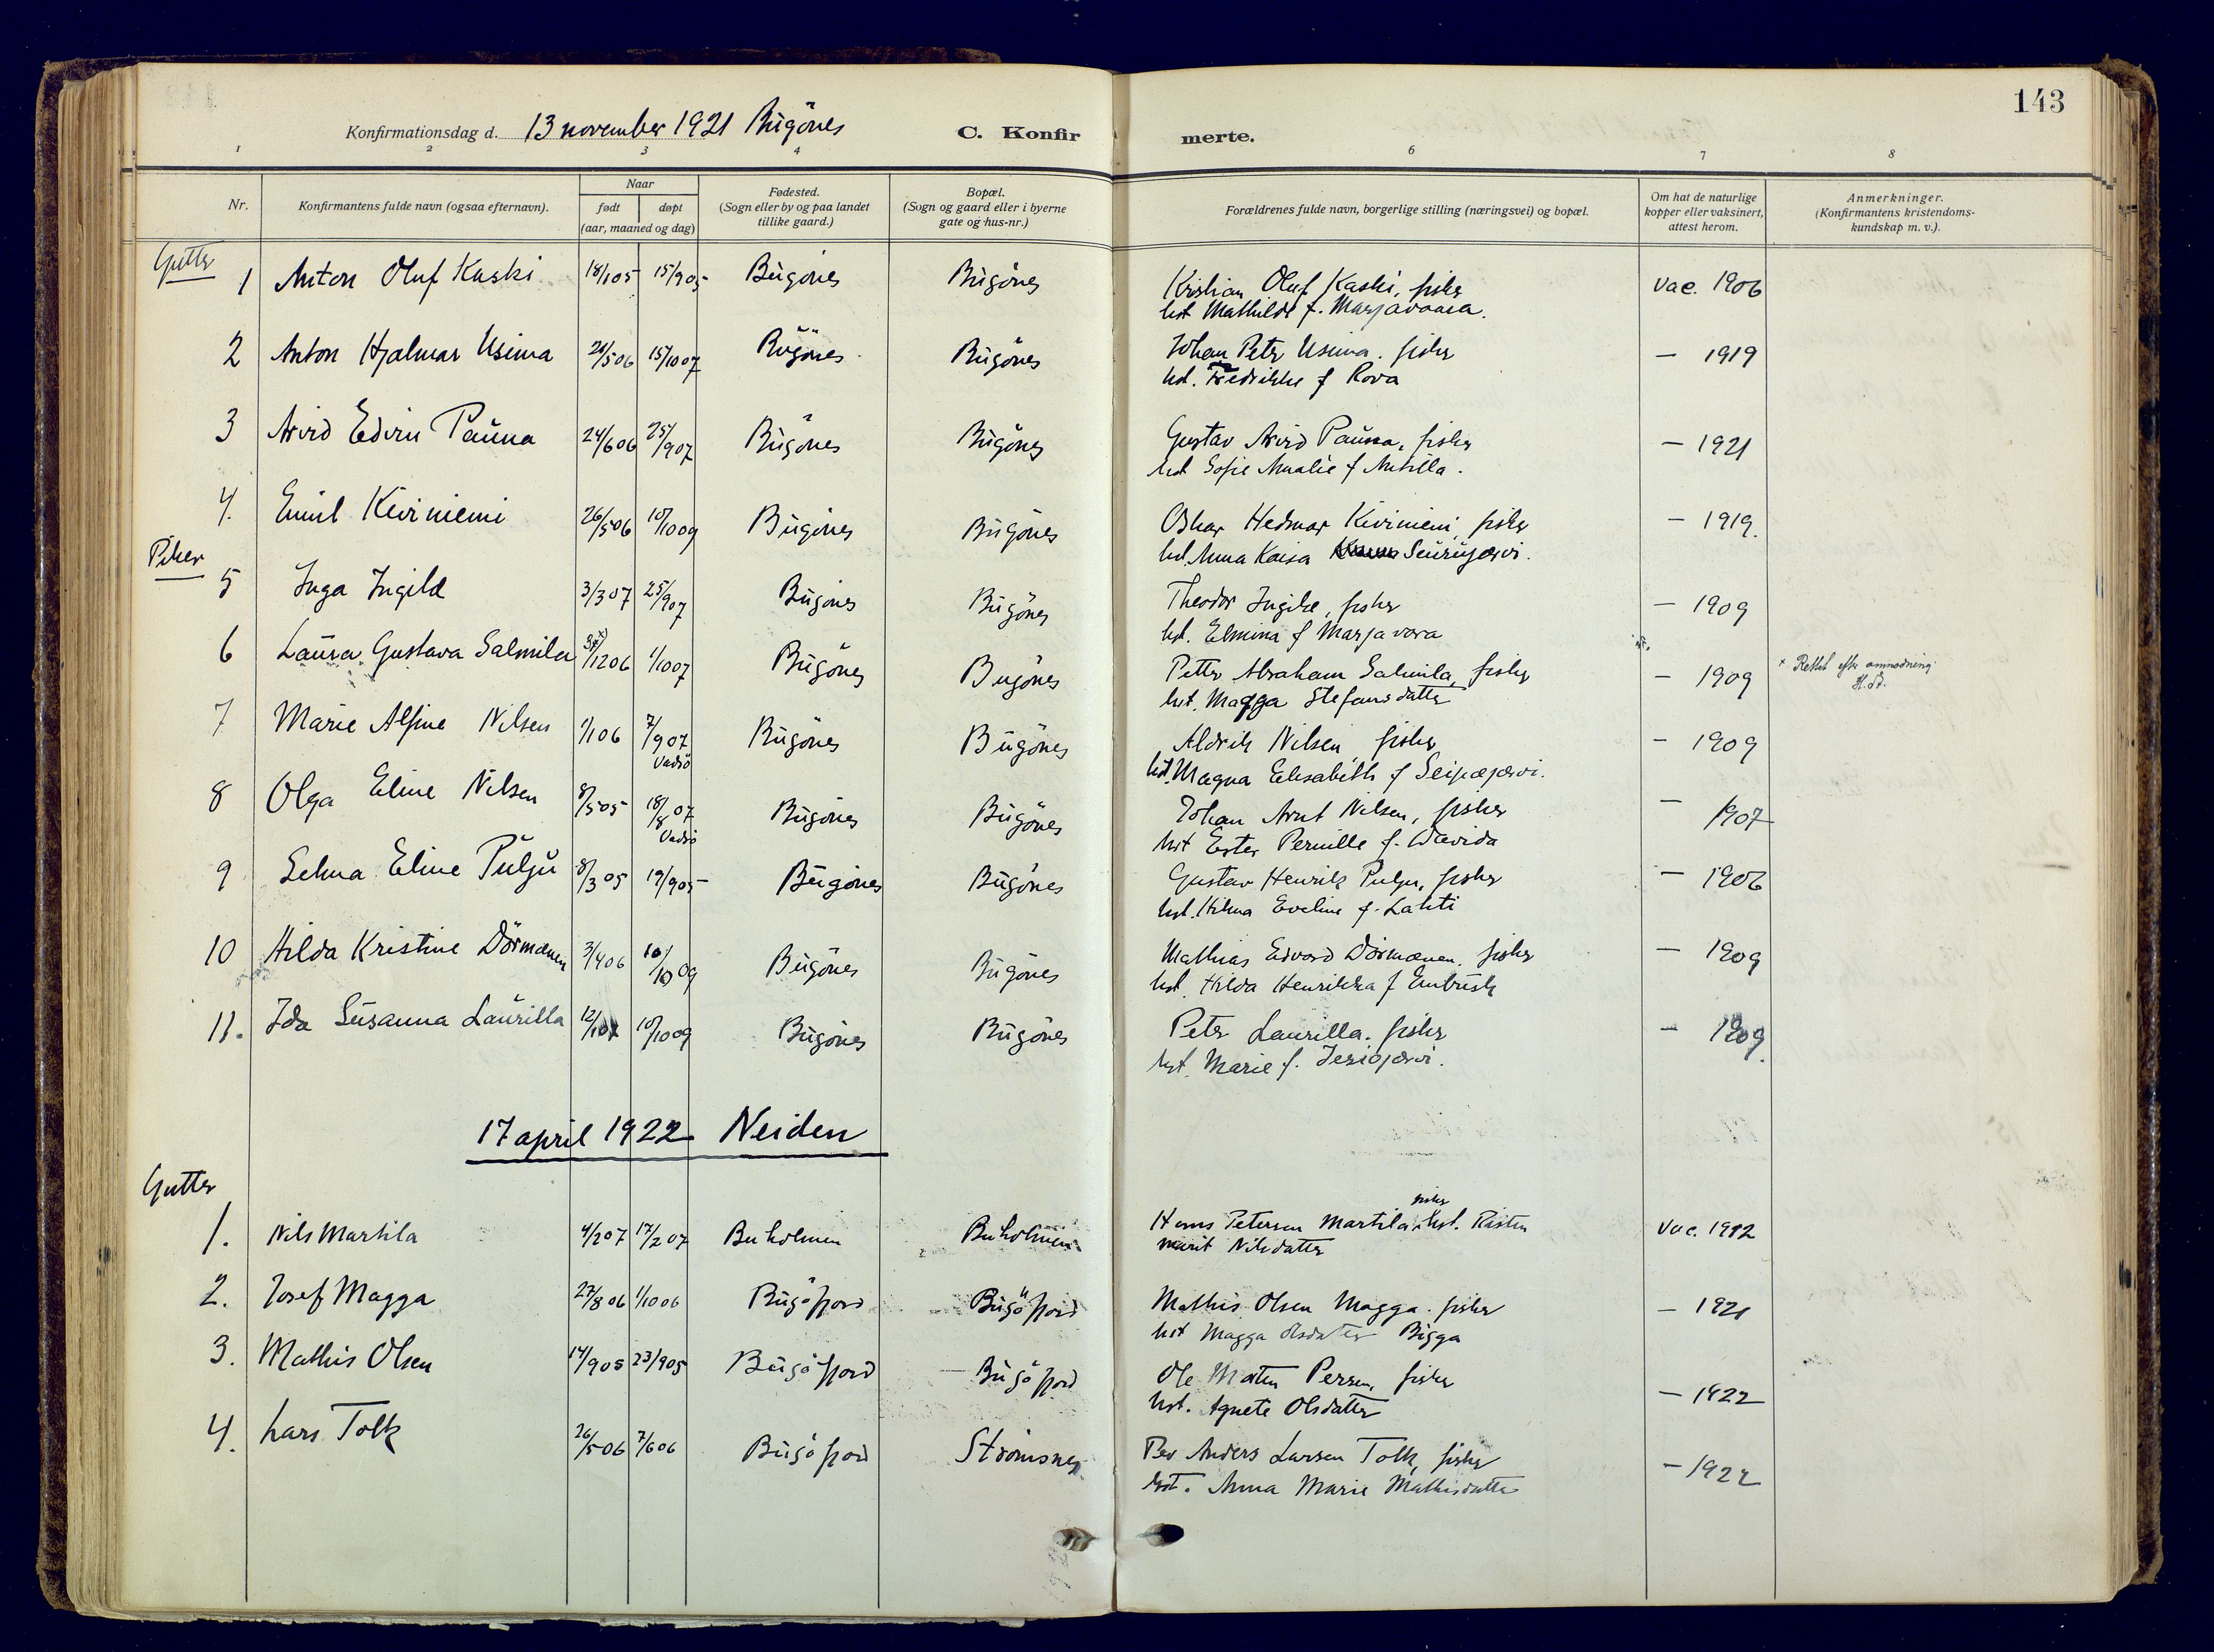 143
Konfirmationsdag d. 13 november 1921 Bugönes C. Konfir merte.
1 2 3 4 6 7 8
Nr. Konfirmantens fulde navn (ogsaa efternavn). Naar født døpt (aar, maaned og dag) Fødested. (Sogn eller by og paa landet tillike gaard.) Bopæl. (Sogn og gaard eller i byerne gate og hus-nr.) Forældrenes fulde navn, borgerlige stilling (næringsvei) og bopæl. Om hat de naturlige kopper eller vaksinert, attest herom. Anmerkninger. (Konfirmantens kristendoms-kundskap m. v.).
Gutter
1 Anton Oluf Kaski 18/1 05 15/9 05 Bugönes Bugönes Kristian Oluf Kaski, fisker vac. 1906
hst Mathilde f. Marjavaara.
2 Anton Hjalmar Usima 21/5 06 15/10 07 Bugönes Bugönes Johan Petr Usima. fisker — 1919
hst. Fredrikke f Rova
3 Arvid Edvin Pauna 24/6 06 25/9 07 Bugönes Bugönes Gustav Arvid Pauna, fisker — 1921
hst Sofie Amalie f Antilla.
4. Emil Kiviniemi 26/5 06 10/10 09 Bugönes Bugönes Oskar Hedmar Kiviniemi, fisker — 1919.
hst. Anna Kaisa Seurujærvi.
Piker
5 Inga Ingilæ 3/3 07 25/9 07 Bugönes Bugönes Theodor Ingilæ, fisker — 1909
hst. Elmina f Marjavara
6 Laura Gustava Salmila /12 06 1/10 07 Bugönes Bugönes Petter Abraham Salmila, fisker — 1909 × Rettet efter anmodning
hst. Magga Stefansdatter
7 Marie Alfine Nilsen 1/1 06 7/9 07 Vadsö Bugönes Bugönes Aldrik Nilsen fisker — 1909
hst. Magna Elisabeth f Seipæjærvi.
8 Olga Eline Nilsen 8/5 05 18/8 07 Vadsö Bugönes Bugönes Johan Arnt Nilsen, fisker — 1907
hst Ester Pernille f. Davida
9 Selma Eline Pulju 8/3 05 19/9 05 Bugönes Bugönes Gustav Henrik Pulju, fisker — 1906
hst. Hilma Eveline f. Lahti
10 Hilda Kristine Dörmænen 3/4 06 10/10 09 Bugönes Bugönes Mathias Edvard Dörmænen. fisker — 1909
hst. Hilda Henrikka f Enbusk
11. Ida Susanna Laurilla 12/1 07 10/10 09 Bugönes Bugönes Peter Laurilla. fisker — 1909.
hst. Marie f. Jesiojærvi.
17 april 1922 Neiden
Gutter
fisker
1. Nils Martila 4/2 07 17/2 07 Buholmen Buholmen Hans Petersen Martila. hst. Risten vac. 1912
Marit Nilsdatter
2. Josef Magga 27/8 06 1/10 06 Bugöfjord Bugöfjord Mathis Olsen Magga. fisker — 1921
hst Magga Olsdatter Bigga
3. Mathis Olsen 14/9 05 23/9 05 Bugöfjord Bugöfjord Ole Morten Persen, fisker — 1922
hst. Agnete Olsdatter
4. Lars Tolk 26/5 06 7/6 06 Bugöfjord Strömsnes Per Anders Larsen Tolk, fisker — 1922
hst. Anna Marie Mathisdatter